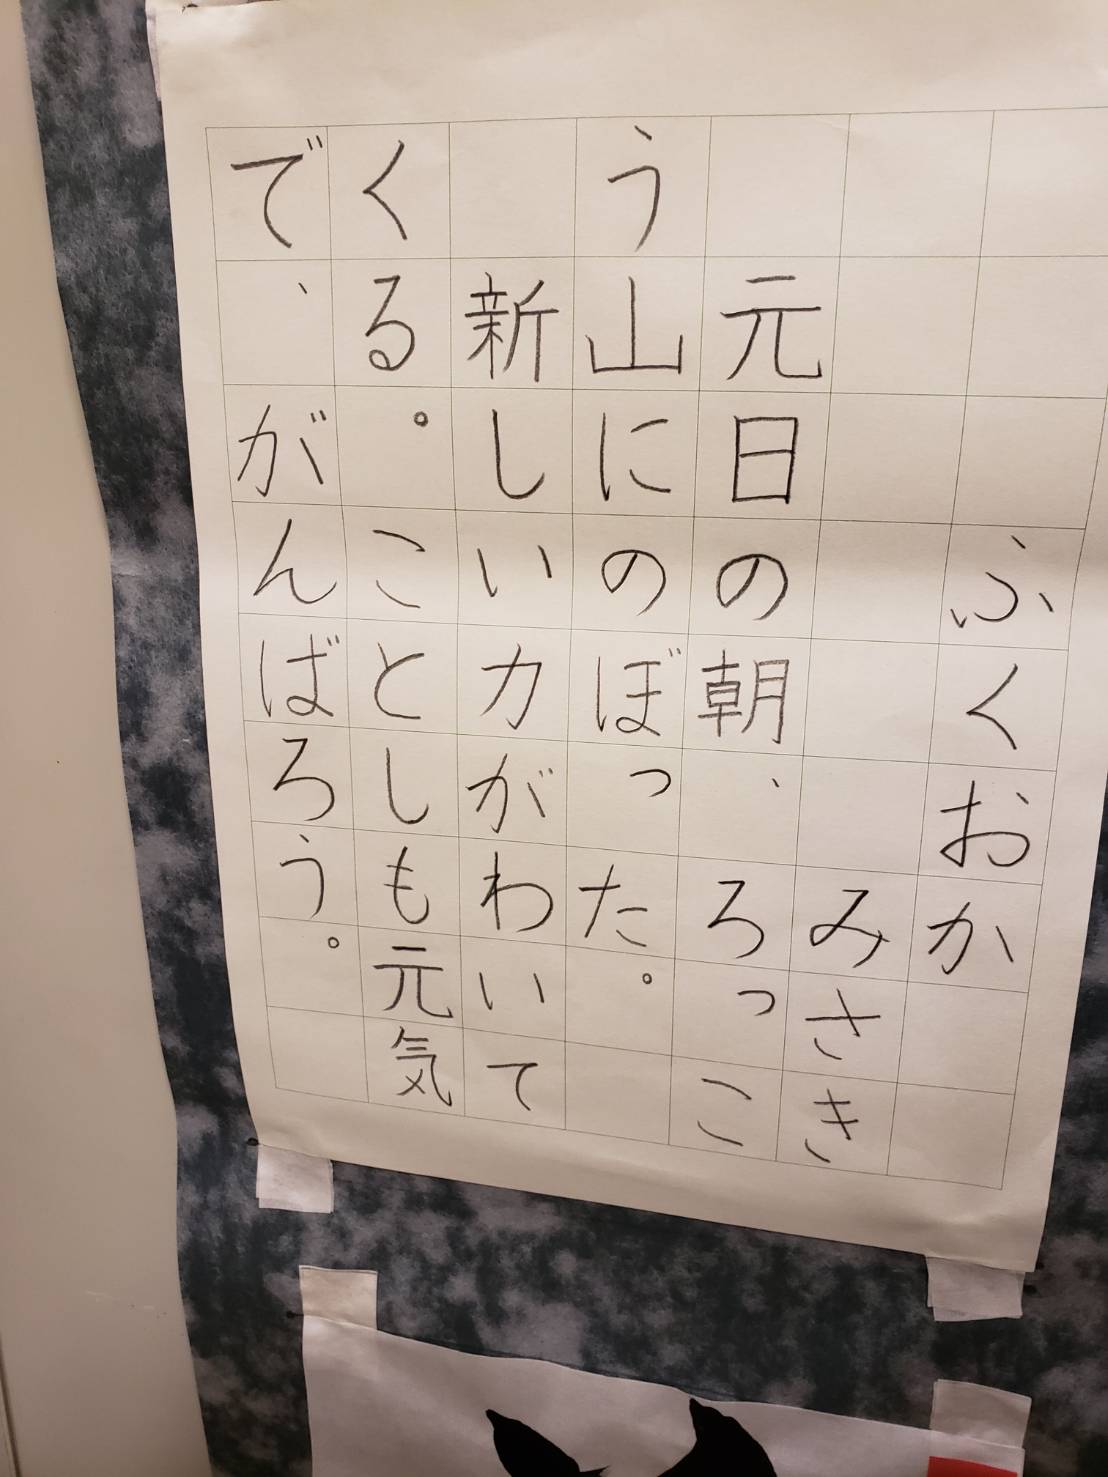 ふくおか
みさき
元日の朝、ろっこ
う山にのぼった。
新しい力がわいて
くる。ことしも元気
で、がんばろう。